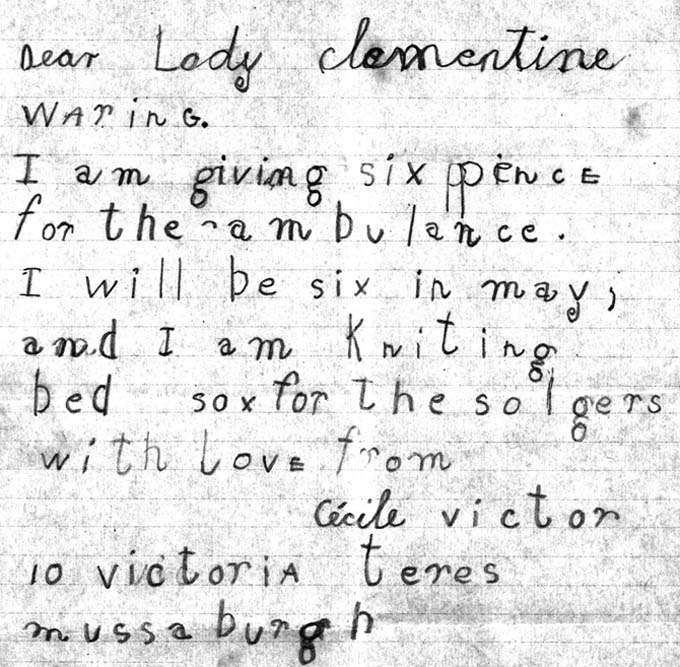 Dear Lady clementine
WAring.
I am giving six ppence
for the ambulance.
I will be six in may,
and I am Kniting
bed sox for the solgers
with Love from
Cécile victor
10 victoria teres
mussaburgh